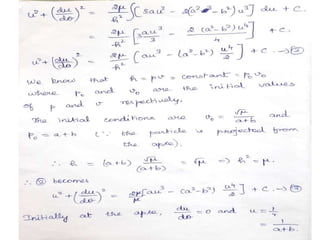 u² + (du/dθ)² = 2μ/h² ∫[3au² - 2(a²-b²)u³] du + c.
= 2μ/h² [3au³/3 - 2(a²-b²)u⁴/4] + c.
u² + (du/dθ)² = 2μ/h² [au³ - (a²-b²) u⁴/2] + c. → ②
We know that h = pv = constant = p₀v₀
where p₀ and v₀ are the initial values
of p and v respectively.
The initial conditions are v₀ = √μ/a+b and
p₀ = a+b (∵ the particle is projected from
the apse).
∴ h = (a+b) √μ/(a+b) = √μ ⇒ h² = μ.
∴ ② becomes
u² + (du/dθ)² = 2μ/μ [au³ - (a²-b²) u⁴/2] + c. → ③
Initially at the apse, du/dθ = 0 and u = 1/r
= 1/a+b.